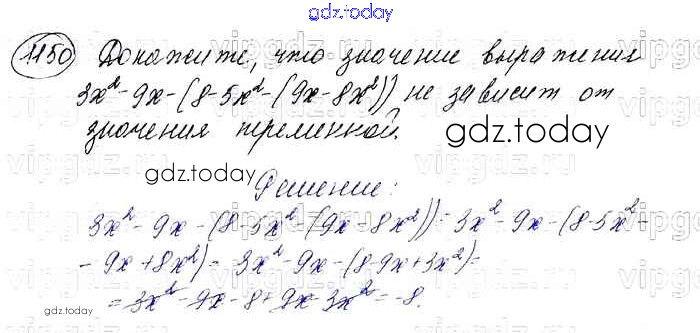 gdz.today
1150 Докажите, что значение выражения
3x²-9x-(8-5x²-(9x-8x²)) не зависит от
значения переменной.
gdz.today
gdz.today
Решение:
3x²-9x-(8-5x²-(9x-8x²))=3x²-9x-(8-5x²-
-9x+8x²)=3x²-9x-(8-9x+3x²)=
=3x²-9x-8+9x-3x²=-8.
gdz.today